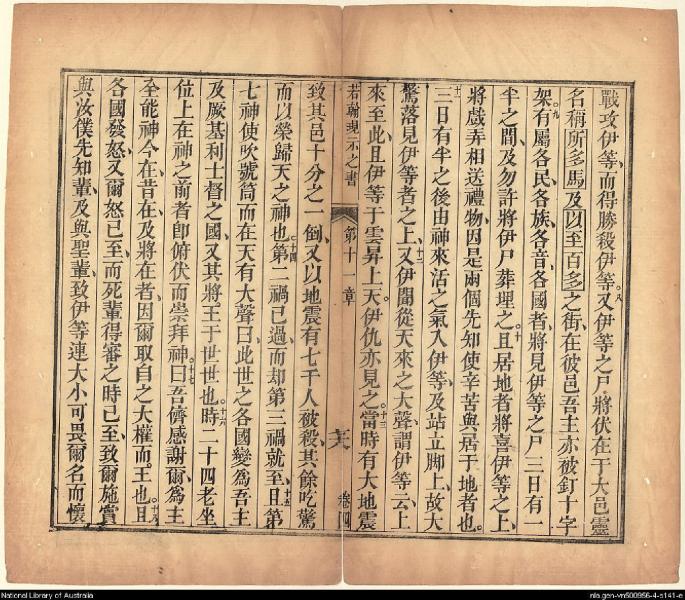 戰攻伊等、而得勝殺伊等。八又伊等之尸將伏在于大邑靈
名稱所多馬及以至百多之街、在彼邑吾主亦被釘十字
架。九有屬各民、各族、各音、各國者、將見伊等之尸三日有一
半之間、及勿許將伊尸葬理之。十且居地者將喜伊等之上、
將戲弄相送禮物、因是兩個先知使辛苦與居于地者也。
十一三日有半之後由神來活之氣入伊等、及站立脚上、故大
驚落見伊等者之上。十二又伊聞從天來之大聲、謂伊等云、上
來至此、且伊等于雲昇上天、伊仇亦見之。十三當時有大地震
若翰現示之書 第十一章 卷四
致其邑十分之一倒、又以地震有七千人被殺、其餘吃驚
而以榮歸天之神也。十四第二禍已過、而却第三禍就至。十五且第
七神使吹號筒而在天有大聲曰、此世之各國變爲吾主
及厥基利士督之國、又其將王于世世也。十六時二十四老坐
位上在神之前者卽俯伏而崇拜神。十七曰吾儕感謝爾、爲主
全能神今在、昔在、及將在者、因爾取自之大權而王也。十八且
各國發怒、又爾怒已至、而死輩得審之時已至、致爾施賞
與汝僕先知輩、及與聖輩、致伊等連大小可畏爾名、而懷
National Library of Australia
nla.gen-vn500956-4-s141-e